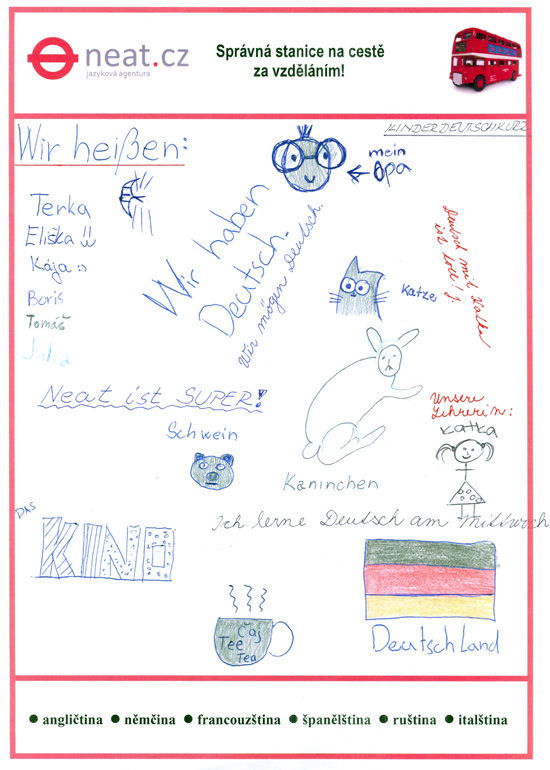 neat.cz
jazyková agentura
Správná stanice na cestě
za vzděláním!
KINDERDEUTSCHKURZ
Wir heißen:
mein
Opa
Terka
Eliška !!
Kája :)
Boris
Tomáš
Julia
Wir haben
Deutsch.
Wir mögen Deutsch.
Deutsch mit Katka
ist toll! :)
Katze
Neat ist SUPER!
Unsere
Lehrerin:
Katka
Schwein
Kaninchen
Ich lerne Deutsch am Mittwoch
DAS
KINO
Čaj
Tee
Tea
DeutschLand
● angličtina ● němčina ● francouzština ● španělština ● ruština ● italština